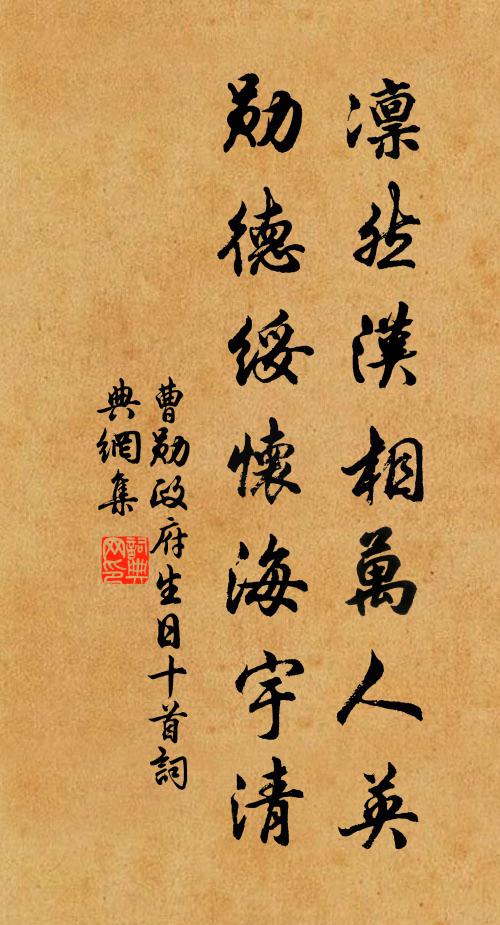 凛然漢相萬人英
勋德綏懷海宇清
曹勋政府生日十首詞
典網集
詞典
网印